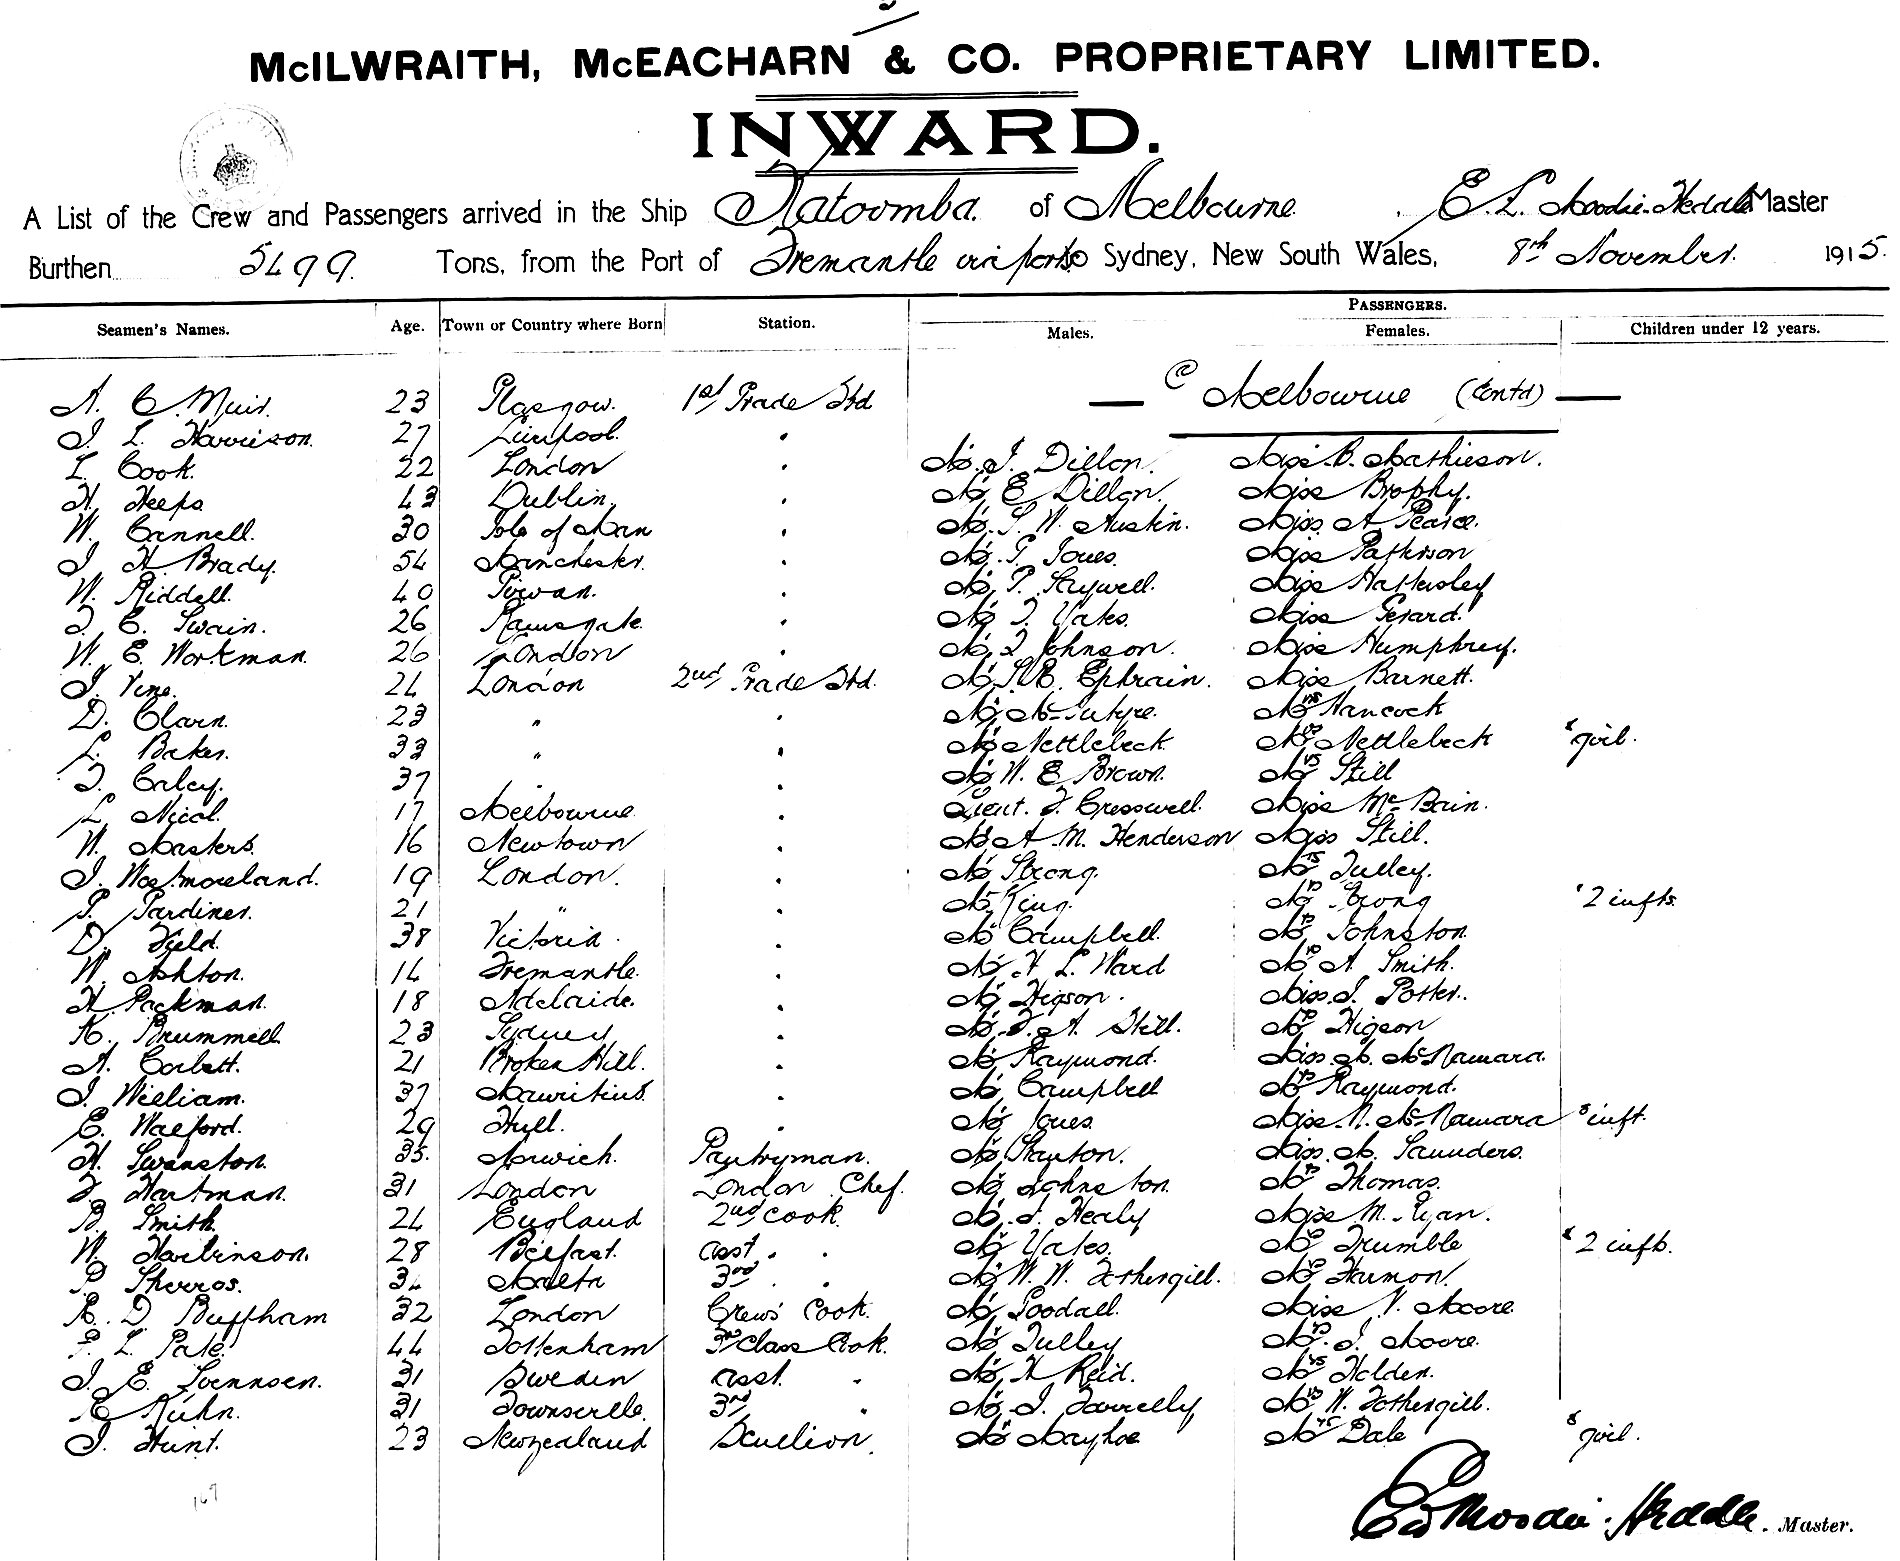 McILWRAITH, McEACHARN & CO. PROPRIETARY LIMITED.
INWARD.
A List of the Crew and Passengers arrived in the Ship Katoomba. of Melbourne. E. L. Moodie-Heddle Master
Burthen 5499 Tons, from the Port of Fremantle via ports to Sydney, New South Wales, 8th November. 1915.
PASSENGERS.
Seamen's Names. Age. Town or Country where Born Station. Males. Females. Children under 12 years.
A. C. Muir. 23 Glasgow. 1st Grade Std @ Melbourne (Contd)
J. L. Harrison. 27 Liverpool. "
L. Cook. 22 London " Mr. J. Dillon. Miss B. Mathieson.
H. Heeps 43 Dublin. " Mr. E. Dillon. Miss Brophy.
W. Cannell. 30 Isle of Man " Mr. S. W. Austin. Miss A. Pearce.
J. H. Brady. 54 Manchester. " Mr. T. Jones. Miss Patterson
W. Riddell. 40 " Mr. P. Saywell. Miss Hattersley
J. E. Swain. 26 Ramsgate. " Mr. J. Yates. Miss Gerard.
W. E. Workman. 26 London " Mr. J. Johnson. Miss Humphrey.
J. Vine. 24 London 2nd Grade Std. Mr. S. E. Ephrain. Miss Barnett.
D. Clarn. 23 " " Mr. McIntyre. Mrs Hancock
L. Baker. 33 " " Mr. Nettlebeck Mrs Nettlebeck & girl.
J. Caley. 37 " " Mr. W. E. Brown. Mrs Still
L. Nicol. 17 Melbourne " Lieut. F. Cresswell. Miss McBain.
W. Masters. 16 Newtown " Mr. A. M. Henderson Miss Still.
J. Westmoreland. 19 London. " Mr. Strong. Mrs Tulley.
P. Gardiner. 21 " " Mr. King. Mrs Strong & 2 infts.
D. Field. 38 Victoria. " Mr. Campbell. Mrs Johnston.
W. Ashton. 14 Fremantle. " Mr. H. L. Ward Mrs A. Smith.
H. Packman. 18 Adelaide. " Mr. Higson. Miss J. Potter.
K. Brummell. 23 Sydney " Mr. F. A. Still. Mrs Higson
A. Corbett. 21 Broken Hill. " Mr. Raymond. Miss M. McNamara.
J. William. 37 Mauritius. " Mr. Campbell Mrs Raymond.
E. Walford. 29 Hull. " Mr. Jones Miss N. McNamara & inft.
H. Swanston. 35. Norwich. Pantryman. Mr. Stanton. Miss M. Saunders.
F. Hartman. 31 London London Chef. Mr. Johnston. Mrs Thomas.
B. Smith. 24 England 2nd Cook. Mr. J. Healy Miss M. Ryan.
W. Harbinson. 28 Belfast. asst. " Mr. Yates. Mrs Trumble & 2 infts.
P. Sherros. 34 Malta 3rd " Mr. W. W. Fothergill. Mrs Harmon.
R. D. Buffham 32 London Crew's Cook. Mr. Goodall. Miss V. Moore
F. L. Pate. 44 Tottenham 3rd Class Cook. Mr. Tulley Mrs. J. Moore.
J. E. Svennsen. 31 Sweden asst. " Mr. H. Reid. Mrs Holden.
E. Kuhn. 31 Townsville. 3rd " Mr. J. Farrelly Mrs W. Fothergill.
J. Hunt. 23 New Zealand Scullion. Mr. Mayhoe Mrs Dale & girl.
167
E L Moodie-Heddle. Master.